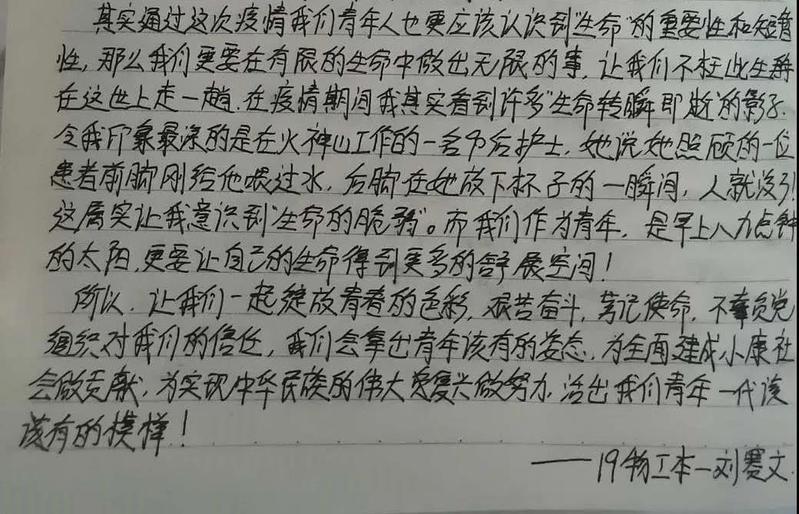 其实通过这次疫情我们青年人也更应该认识到"生命"的重要性和短暂
性,那么我们更要在有限的生命中做出无限的事,让我们不枉此生
在这世上走一趟.在疫情期间我其实看到许多"生命转瞬即逝"的影子.
令我印象最深的是在火神山工作的一名90后护士,她说她照顾的一位
患者前脚刚给他喂过水,后脚在她放下杯子的一瞬间,人就没了!
这属实让我意识到"生命的脆弱"。而我们作为青年,是早上八九点钟
的太阳,更要让自己的生命得到更多的舒展空间!
所以,让我们一起绽放青春的色彩,艰苦奋斗,笃记使命,不辜负党
组织对我们的信任,我们会拿出青年该有的姿态,为全面建成小康社
会做贡献,为实现中华民族的伟大复兴做努力,活出我们青年一代该
该有的模样!
——19物工本一刘赛文.